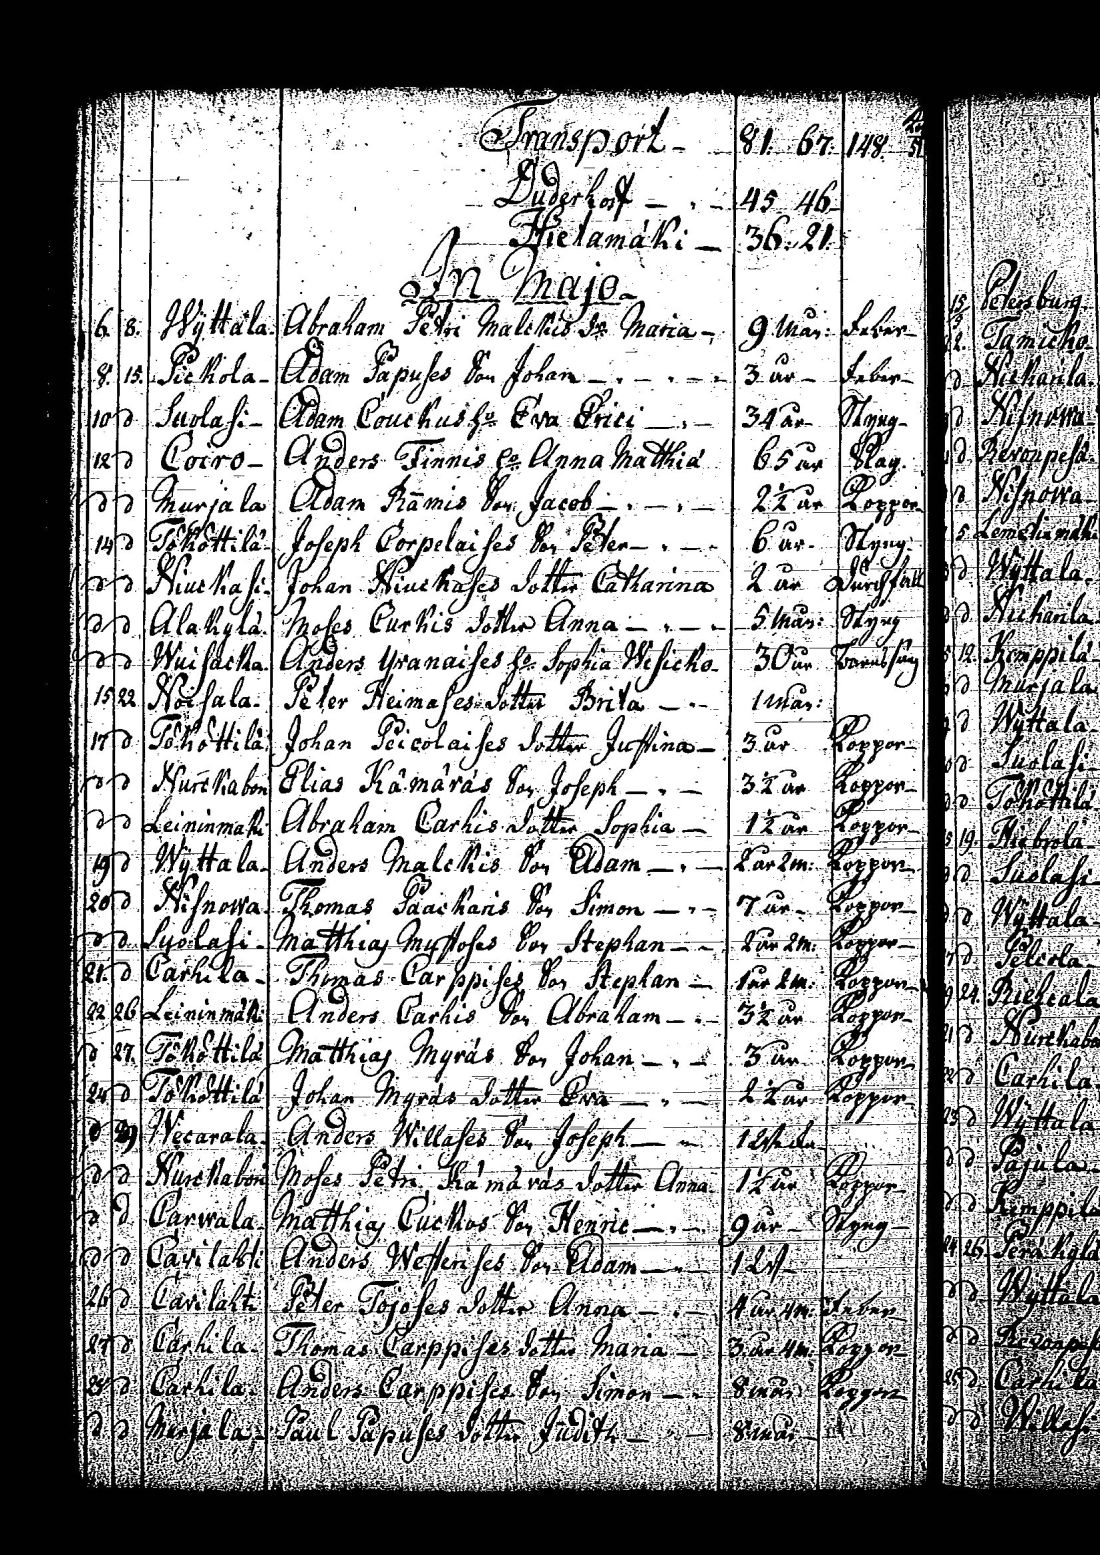 Transport - 81. 67. 148.
Duderhoff - 45 46
Hietamäki - 36. 21.
In Majo
6. 8. Wyttala. Abraham Petri Malckis Maria - 9 Mån: Feber-
8. 15. Pickola - Adam Papuses Son Johan - 3 år - Feber-
10 d Suolasi - Adam Couckus Eva Erici - 34 år Styng-
12 d Coiro - Anders Finnis Anna Matthiä 65 år
d d Murjala Adam Rämis Son Jacob - 2½ år Koppor
14 d Tökottilä Joseph Corpelaises Son Peter - 6 år - Styng:
d d Niuckasi - Johan Niuckases dotter Catharina 2 år Durchfall
d d Alakylä. Moses Curkis dotter Anna - 5 Mån: Styng
d d Anders Yranaises Sophia Wesicko - 30 år
15 22 Noisala - Peter Heimases dotter Brita - 1 mån:
17 d Tökottilä Johan Peicolaises dotter Justina - 3 år Koppor-
d d Nurckabon Elias Kämäräs Son Joseph - 3½ år Koppor-
d d Leininmäki Abraham Carhis dotter Sophia - 1½ år Koppor-
19 d Wyttala - Anders Malckis Son Adam - 2 år 2 m: Koppor-
20 d Nisnowa Thomas Paackaris Son Simon - 7 år - Koppor-
d d Syolasi - Matthias Myssoses Son Stephan - 2 år 2m: Koppor-
21. d Carhila - Thomas Carppises Son Stephan - 1 år 2m: Koppor-
22 26 Leininmäk: Anders Carhis Son Abraham - 3½ år Koppor-
d 27. Tökottilä Matthias Myräs Son Johan - 3 år Koppor-
24 d Tökottilä Johan Myräs dotter Eva - 2½ år Koppor-
d 29 Wecarala - Anders Willases Son Joseph -
d d Nurckabon Moses Petri Kämäräs dotter Anna 1½ år Koppor-
d d Carwala - Matthias Cuckos Son Henric - 9 år - Styng-
d d Cavilahti Anders Westerises Son Adam -
26 d Cavilahti Peter Tojoses dotter Anna - 4 år 4m. Feber
27 d Carhila - Thomas Carppises dotter Maria - 3 år 4m. Koppor-
28 d Carhila - Anders Carppises Son Simon - 8 mån Koppor-
d d Murjala - Paul Papuses dotter Judith - 8 mån -
Petersburg
22. Tamicko
d Nickarila
d Nisnowa
d Nisnowa
5. Lemetinmäki
Wyttala
d Nickarila
12. Kemppilä
d Murjala
d Wyttala
d Suolasi
d Tökottilä
19.
d Suolasi
d Wyttala
24.
d Nurckabo
d Carhila
d Wyttala
d Pajula
d Kemppilä
26.
d Wyttala
d Carhila
d Willasi